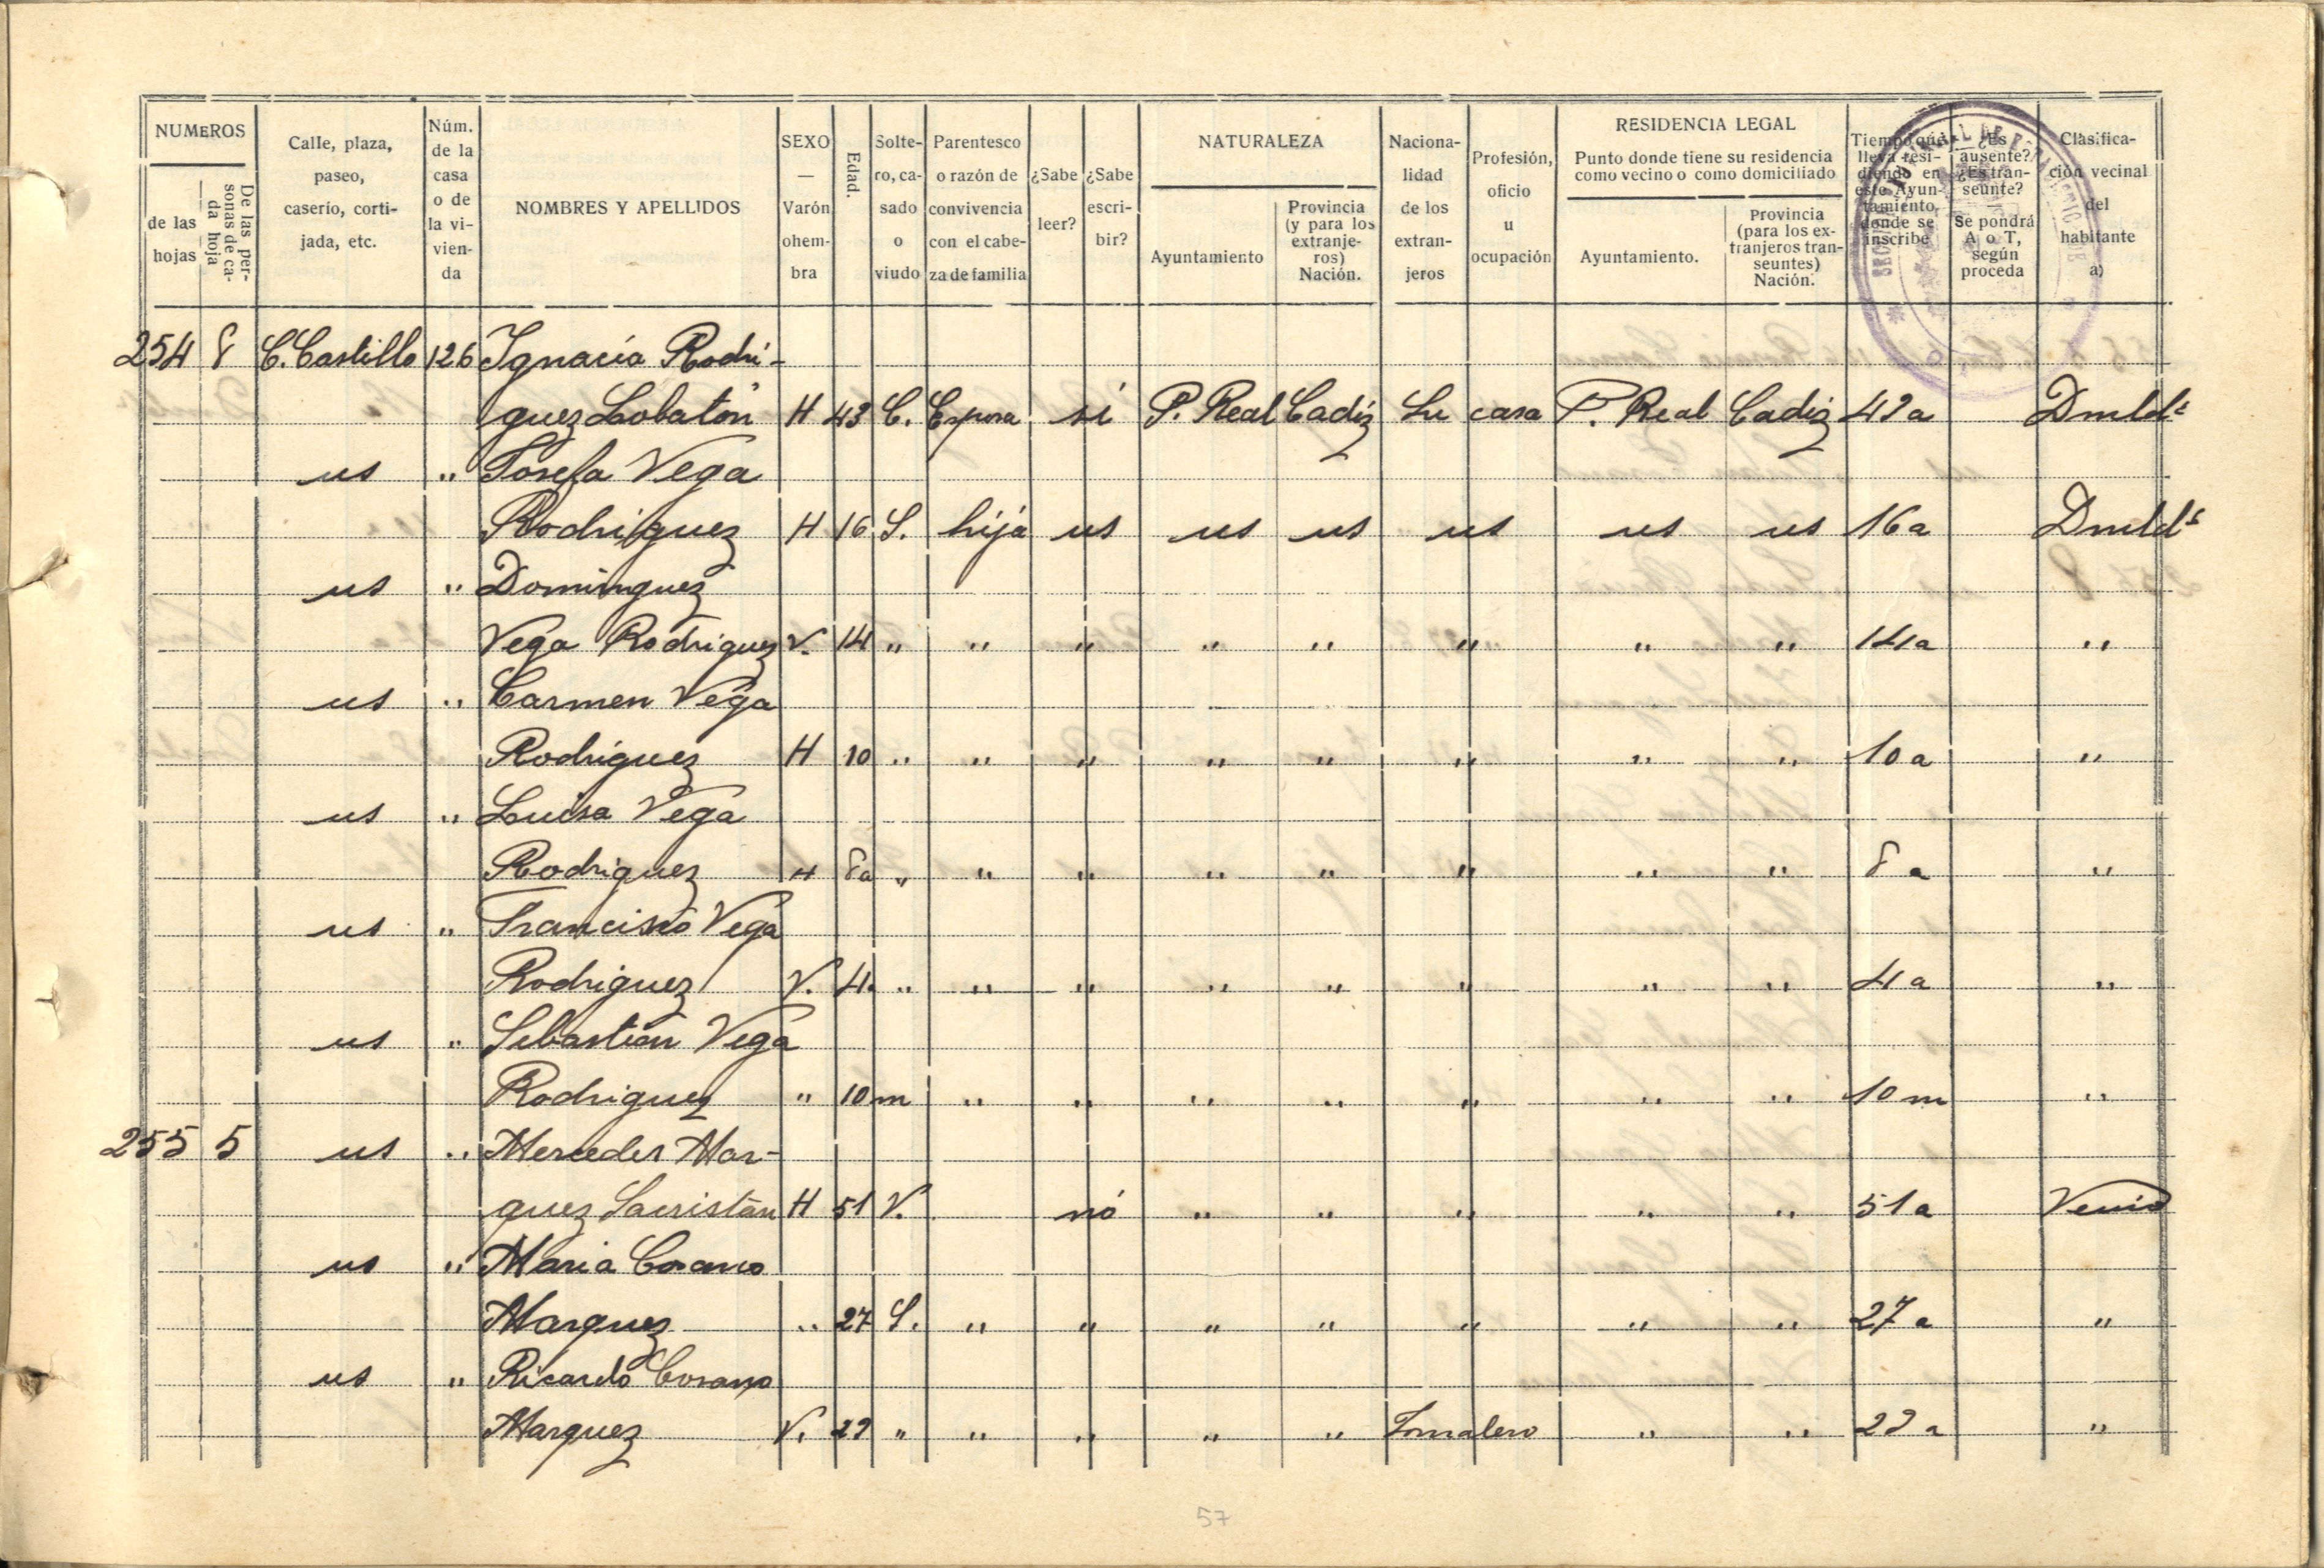 NUMEROS
de las hojas
De las personas de cada hoja
Calle, plaza, paseo, caserío, cortijada, etc.
Núm. de la casa o de la vivienda
NOMBRES Y APELLIDOS
SEXO — Varón o hembra
Edad.
Soltero, casado o viudo
Parentesco o razón de convivencia con el cabeza de familia
¿Sabe leer?
¿Sabe escribir?
NATURALEZA
Ayuntamiento
Provincia (y para los extranjeros) Nación.
Nacionalidad de los extranjeros
Profesión, oficio u ocupación
RESIDENCIA LEGAL
Punto donde tiene su residencia como vecino o como domiciliado
Ayuntamiento.
Provincia (para los extranjeros transeuntes) Nación.
Tiempo que lleva residiendo en este Ayuntamiento donde se inscribe
¿Es ausente? ¿Es transeunte? — Se pondrá A o T, según proceda
Clasificación vecinal del habitante a)
254 8 C. Castillo 126 Ignacia Rodri-
guez Lobatón H 43 C. Esposa sí P. Real Cadiz Su casa P. Real Cadiz 42a Dmldª
us " Josefa Vega
Rodriguez H 16 S. hija us us us us us us 16a Dmldª
us " Dominguez
Vega Rodriguez V. 14 " " " " " " " " 14a "
us " Carmen Vega
Rodriguez H 10 " " " " " " " " 10a "
us " Luisa Vega
Rodriguez H 8a " " " " " " " " 8a "
us " Francisco Vega
Rodriguez V. 4. " " " " " " " " 4a "
us " Sebastian Vega
Rodriguez " 10m " " " " " " " 10m "
255 5 us " Mercedes Mar-
quez Sacristán H 51 V. nó " " " " " 51a Vecino
us " Maria
Marquez " 27 S. " " " " " " " 27a "
us " Ricardo
Marquez V. 29 " " " " " Jornalero " " 29a "
57